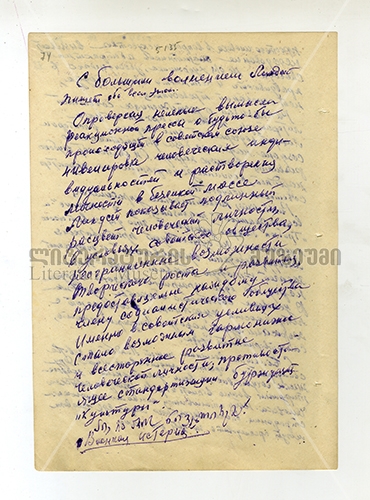 74
5135
С большим волнением Лондон
пишет обо всем этом.
Опровергая нелепые вымыслы
реакционной прессы о будто бы
происходящ в советском союзе
нивелировке человеческих инди-
видуальностей и растворении
личности в безликой массе
показывает подлинный
расцвет человеческой личности
в условиях советского общества,
неограниченные возможности
творческого роста и развития,
предоставленные каждому
члену социалистического общества
Именно в советских условиях
стало возможным гармоничное
и всестороннее развитие
человеческой личности, противосто-
ящее стандартизации буржуазн
"культуры"
Военная истерия
ლიტერატურის მუზეუმი
Literature Museum